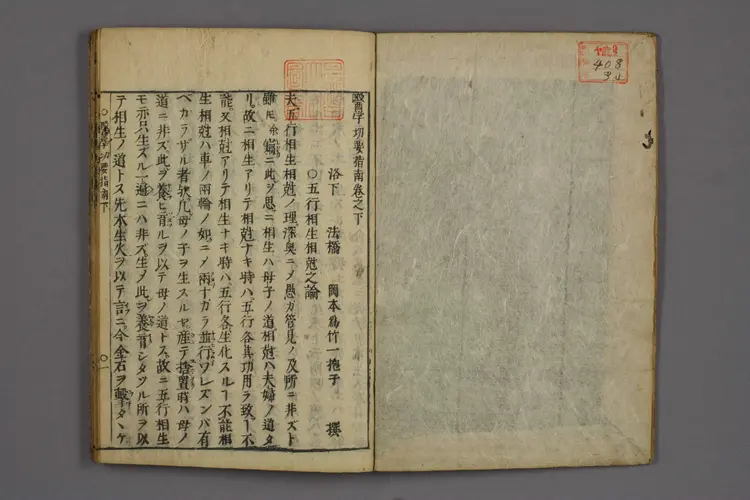 醫學切要指南卷之下
洛下 法橋 岡本爲竹一抱子 撰
○五行相生相尅之論
夫五行相生相尅ノ理深奥ニメ愚カ管見ノ及所ニ非ズト
雖𪜈余竊ニ此ヲ思ニ相生ハ母子ノ道相尅ハ夫婦ノ道タ
リ故ニ相生アリテ相尅ナキ時ハ五行各其功用ヲ致丨不
能又相尅アリテ相生ナキ時ハ五行各生化スル丨不能相
生相尅ハ車ノ兩輪ノ如ニメ兩ナカラ並行ワレズンバ有
ベカラザル者欤凡母ノ子ヲ生スルヤ産テ捨置時ハ母ノ
道ニ非ズ此ヲ養ヒ育ルヲ以テ母ノ道トス故ニ五行相生
モ亦只生スル一邉ニハ非ズ生メ此ヲ養育シタツル所ヲ以
テ相生ノ道トス先木生火ヲ以テ言ニ今金石ヲ擊タヽケ
○醫學切要指南下
○一
408